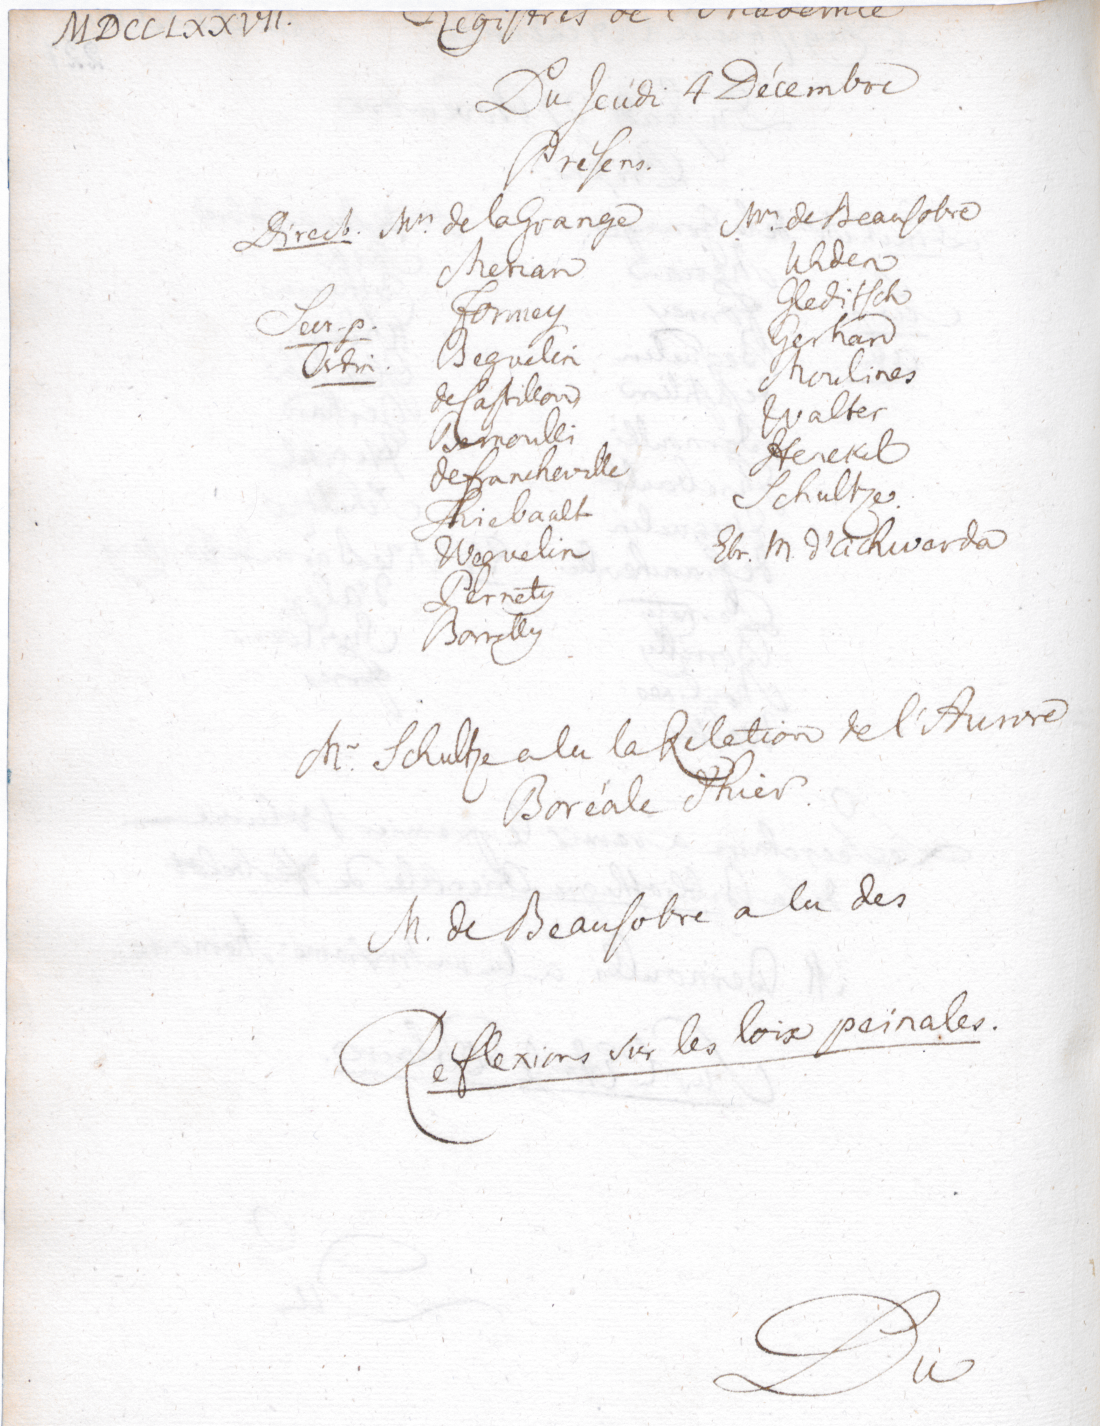 MDCCLXXVII.
Registres de l'Académie
Du Jeudi 4 Décembre
Présens.
Direct. Mrs. de la Grange
Merian
Secr. p. Formey
Ordin. Beguelin
de Castillon
Bernoulli
de Francheville
Thiebault
Weguelin
Pernety
Borrelly
Mrs. de Beausobre
Uhden
Gleditsch
Gerhard
Moulines
Walter
Henckel
Schultze.
Etr. M. d'Ackworda
Mr. Schultze a lu la Rélation de l'Aurore
Boréale d'hier.
M. de Beausobre a lu des
Réflexions sur les loix peinales.
Du